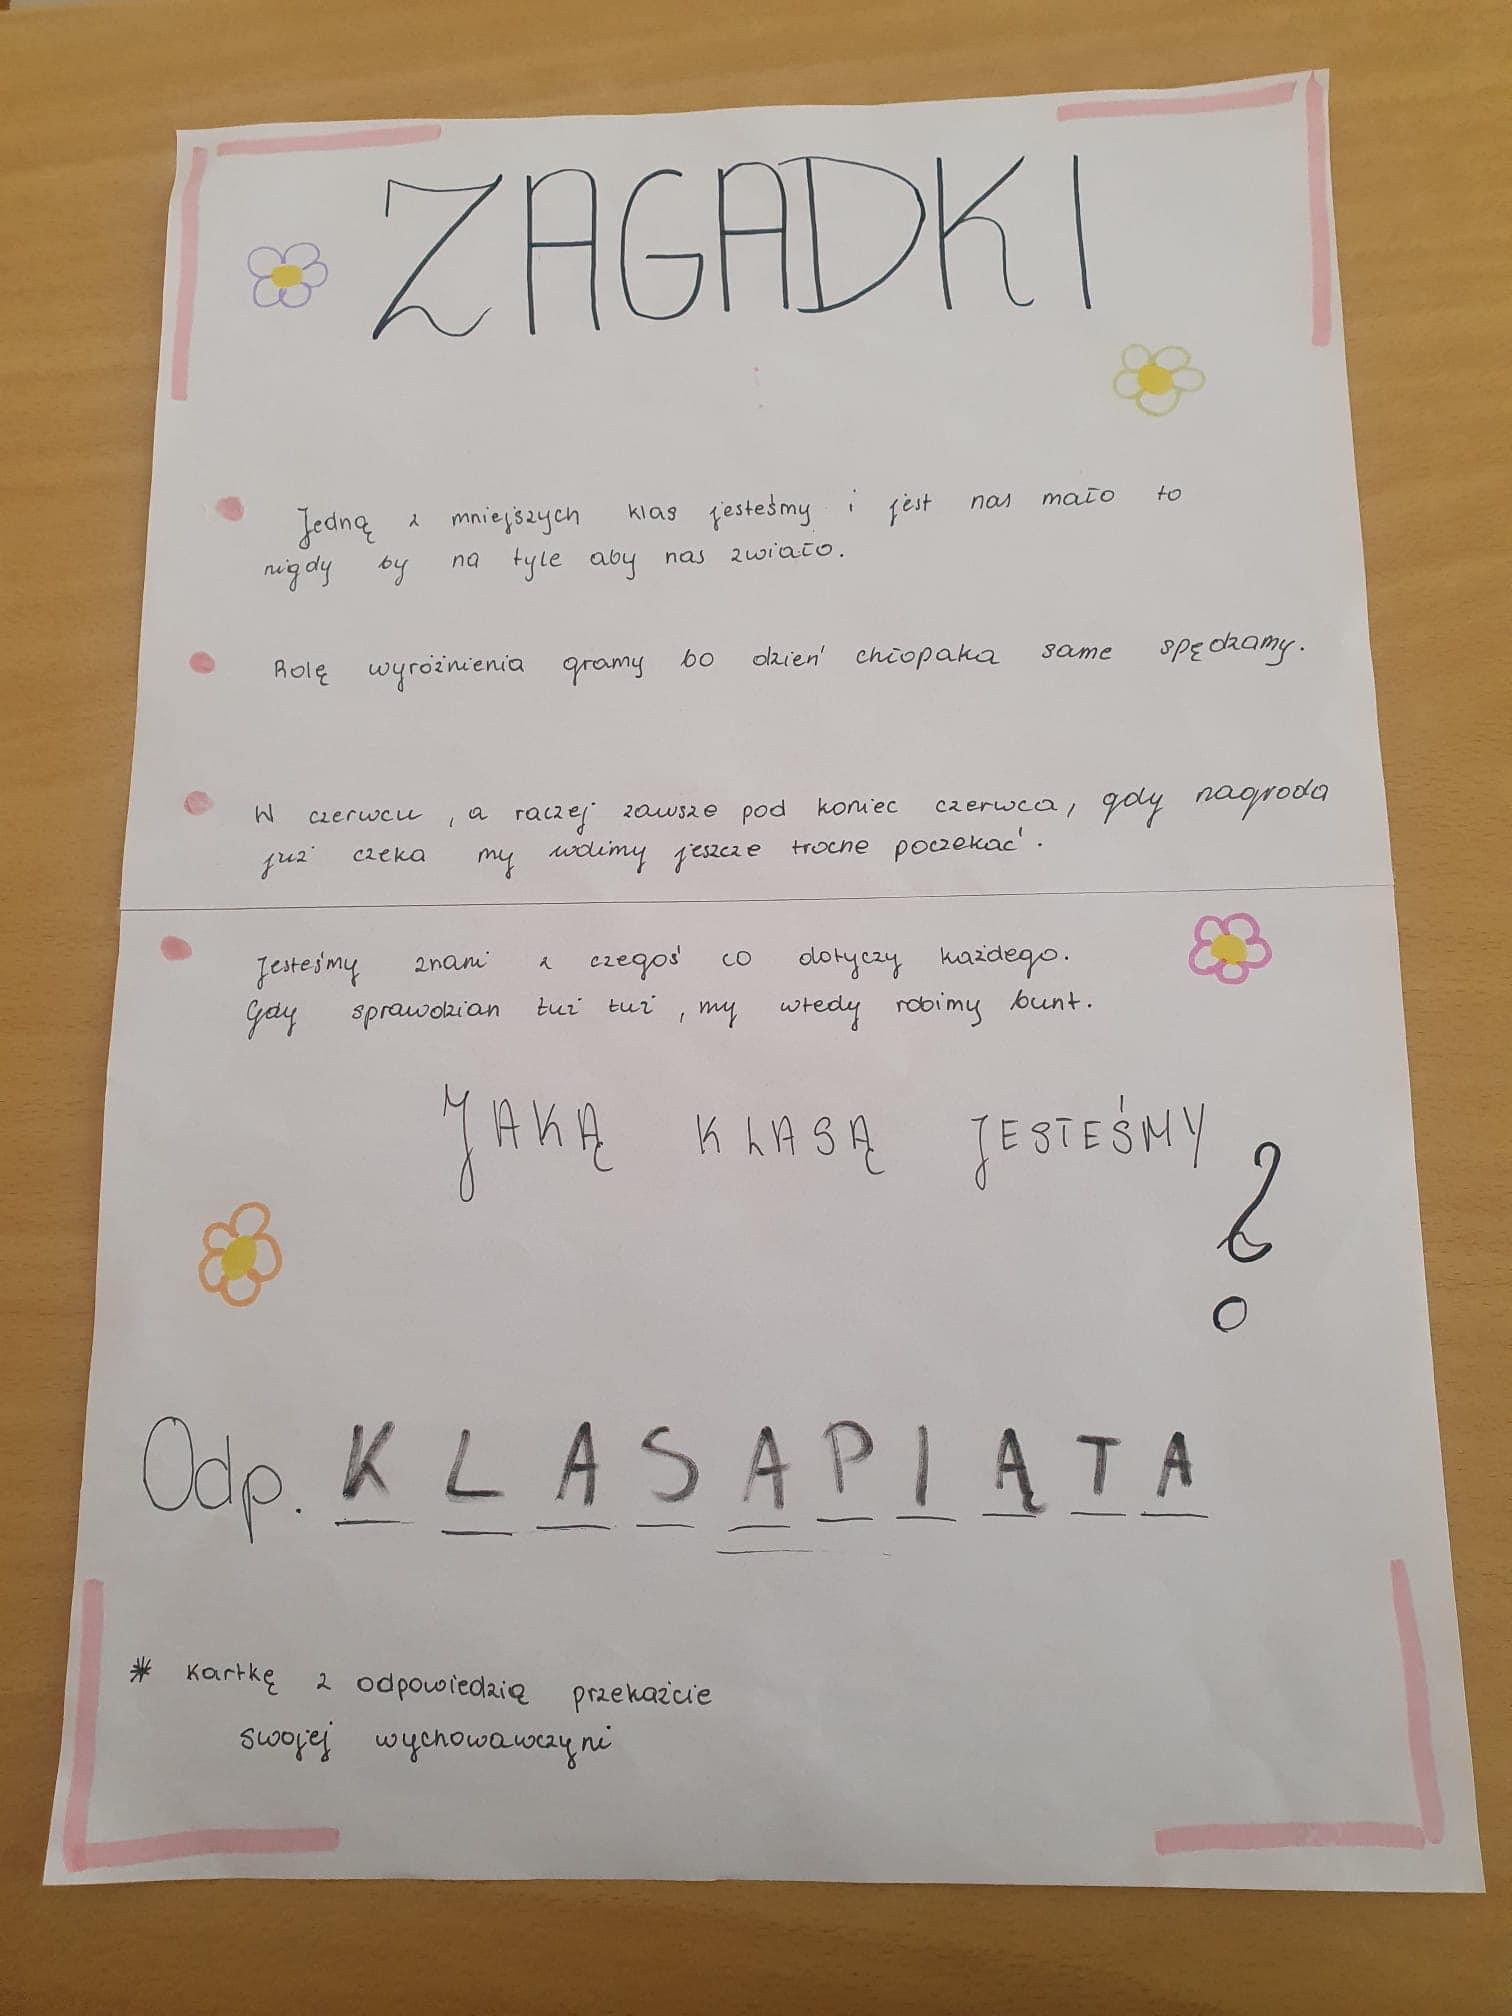 ZAGADKI
Jedną z mniejszych klas jesteśmy i jest nas mało to
nigdy by na tyle aby nas zwiało.
Rolę wyróżnienia gramy bo dzień chłopaka same spędzamy.
W czerwcu, a raczej zawsze pod koniec czerwca, gdy nagroda
już czeka my wolimy jeszcze troche poczekać.
Jesteśmy znani z czegoś co dotyczy każdego.
Gdy sprawdzian tuż tuż, my wtedy robimy bunt.
JAKĄ KLASĄ JESTEŚMY?
Odp. KLASAPIĄTA
* Kartkę z odpowiedzią przekażcie
swojej wychowawczyni